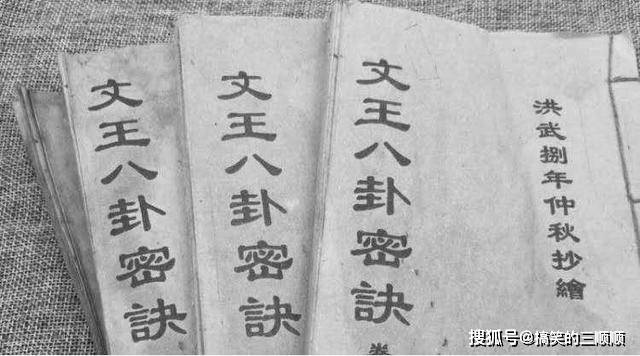 洪武捌年仲秋抄繪
文王八卦密訣
卷
文王八卦密訣
文王八卦密訣
搜狐号@搞笑的三顺顺